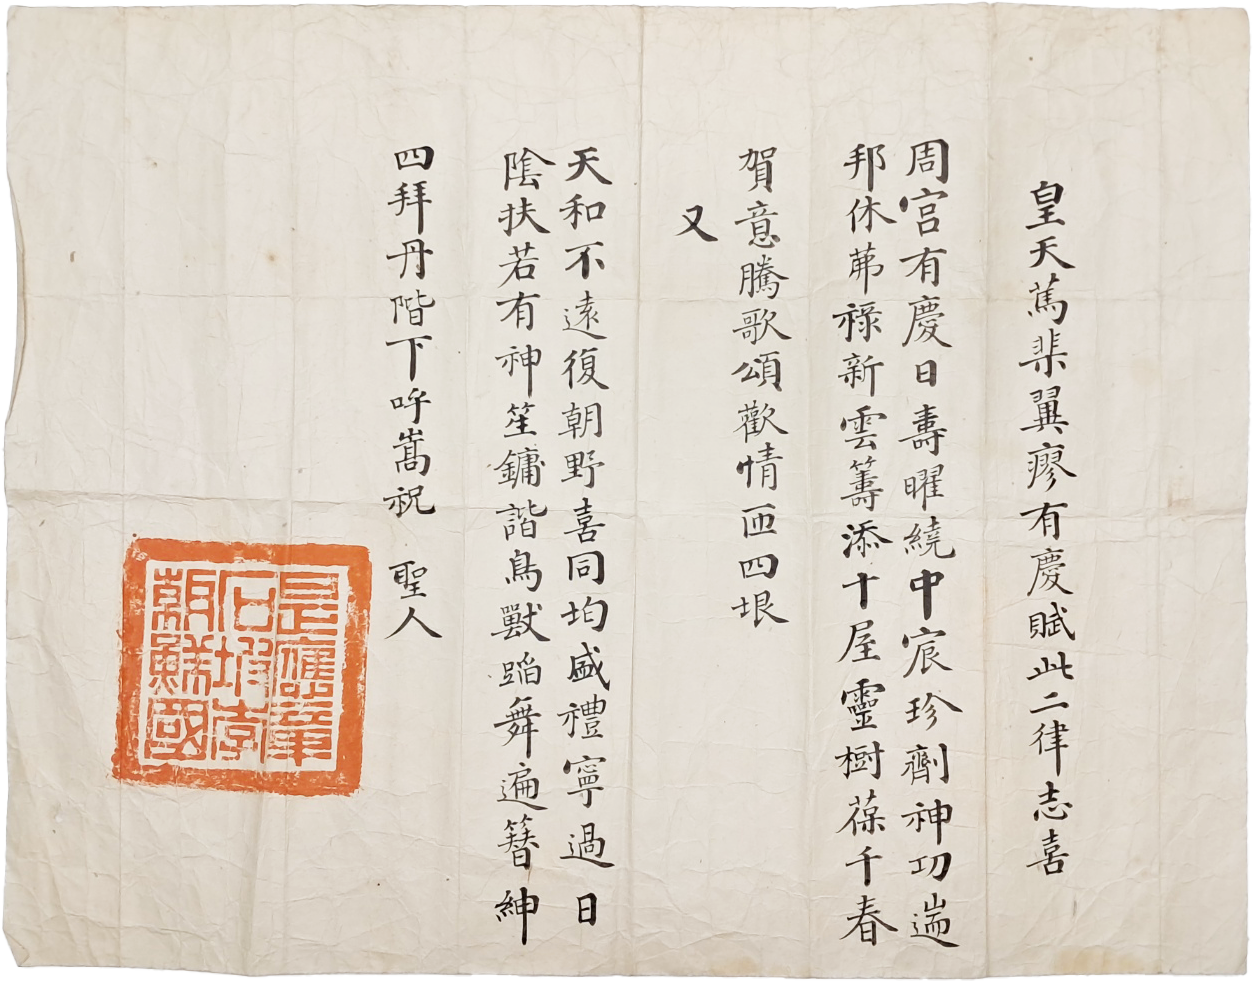 皇天篤棐翼瘳有慶賦此二律志喜
周宮有慶日壽曜繞中宸珍劑神功遄
邦休茀祿新雲籌添十屋靈樹葆千春
賀意騰歌頌歡情匝四垠
又
天和不遠復朝野喜同均盛禮寧過日
陰扶若有神笙鏞諧鳥獸蹈舞遍簪紳
四拜丹階下呼嵩祝 聖人
朝鮮國
石坡李
昰應章